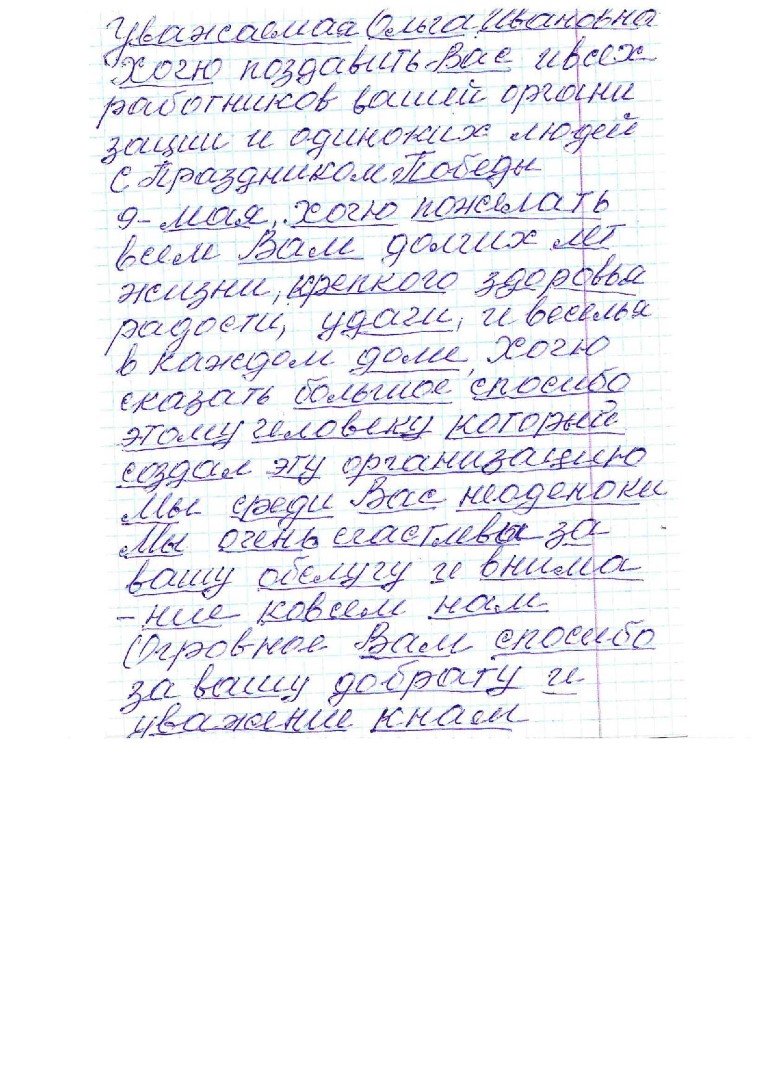 Уважаемая Ольга Ивановна
Хочю поздавить Вас и всех
работников вашей органи
зации и одиноких людей
с Праздником Победы
9-мая, хочю пожелать
всем Вам долгих лет
жизни, крепкого здоровья
радости, удачи, и веселья
в каждом доме, Хочю
сказать большое спосибо
этому человеку который
создал эту организацию
Мы среди Вас неоденоки
Мы очень счастлевы за
вашу обслугу и внима
-ние ковсем нам
Огровное Вам спосибо
за вашу доброту и
уважение кнам